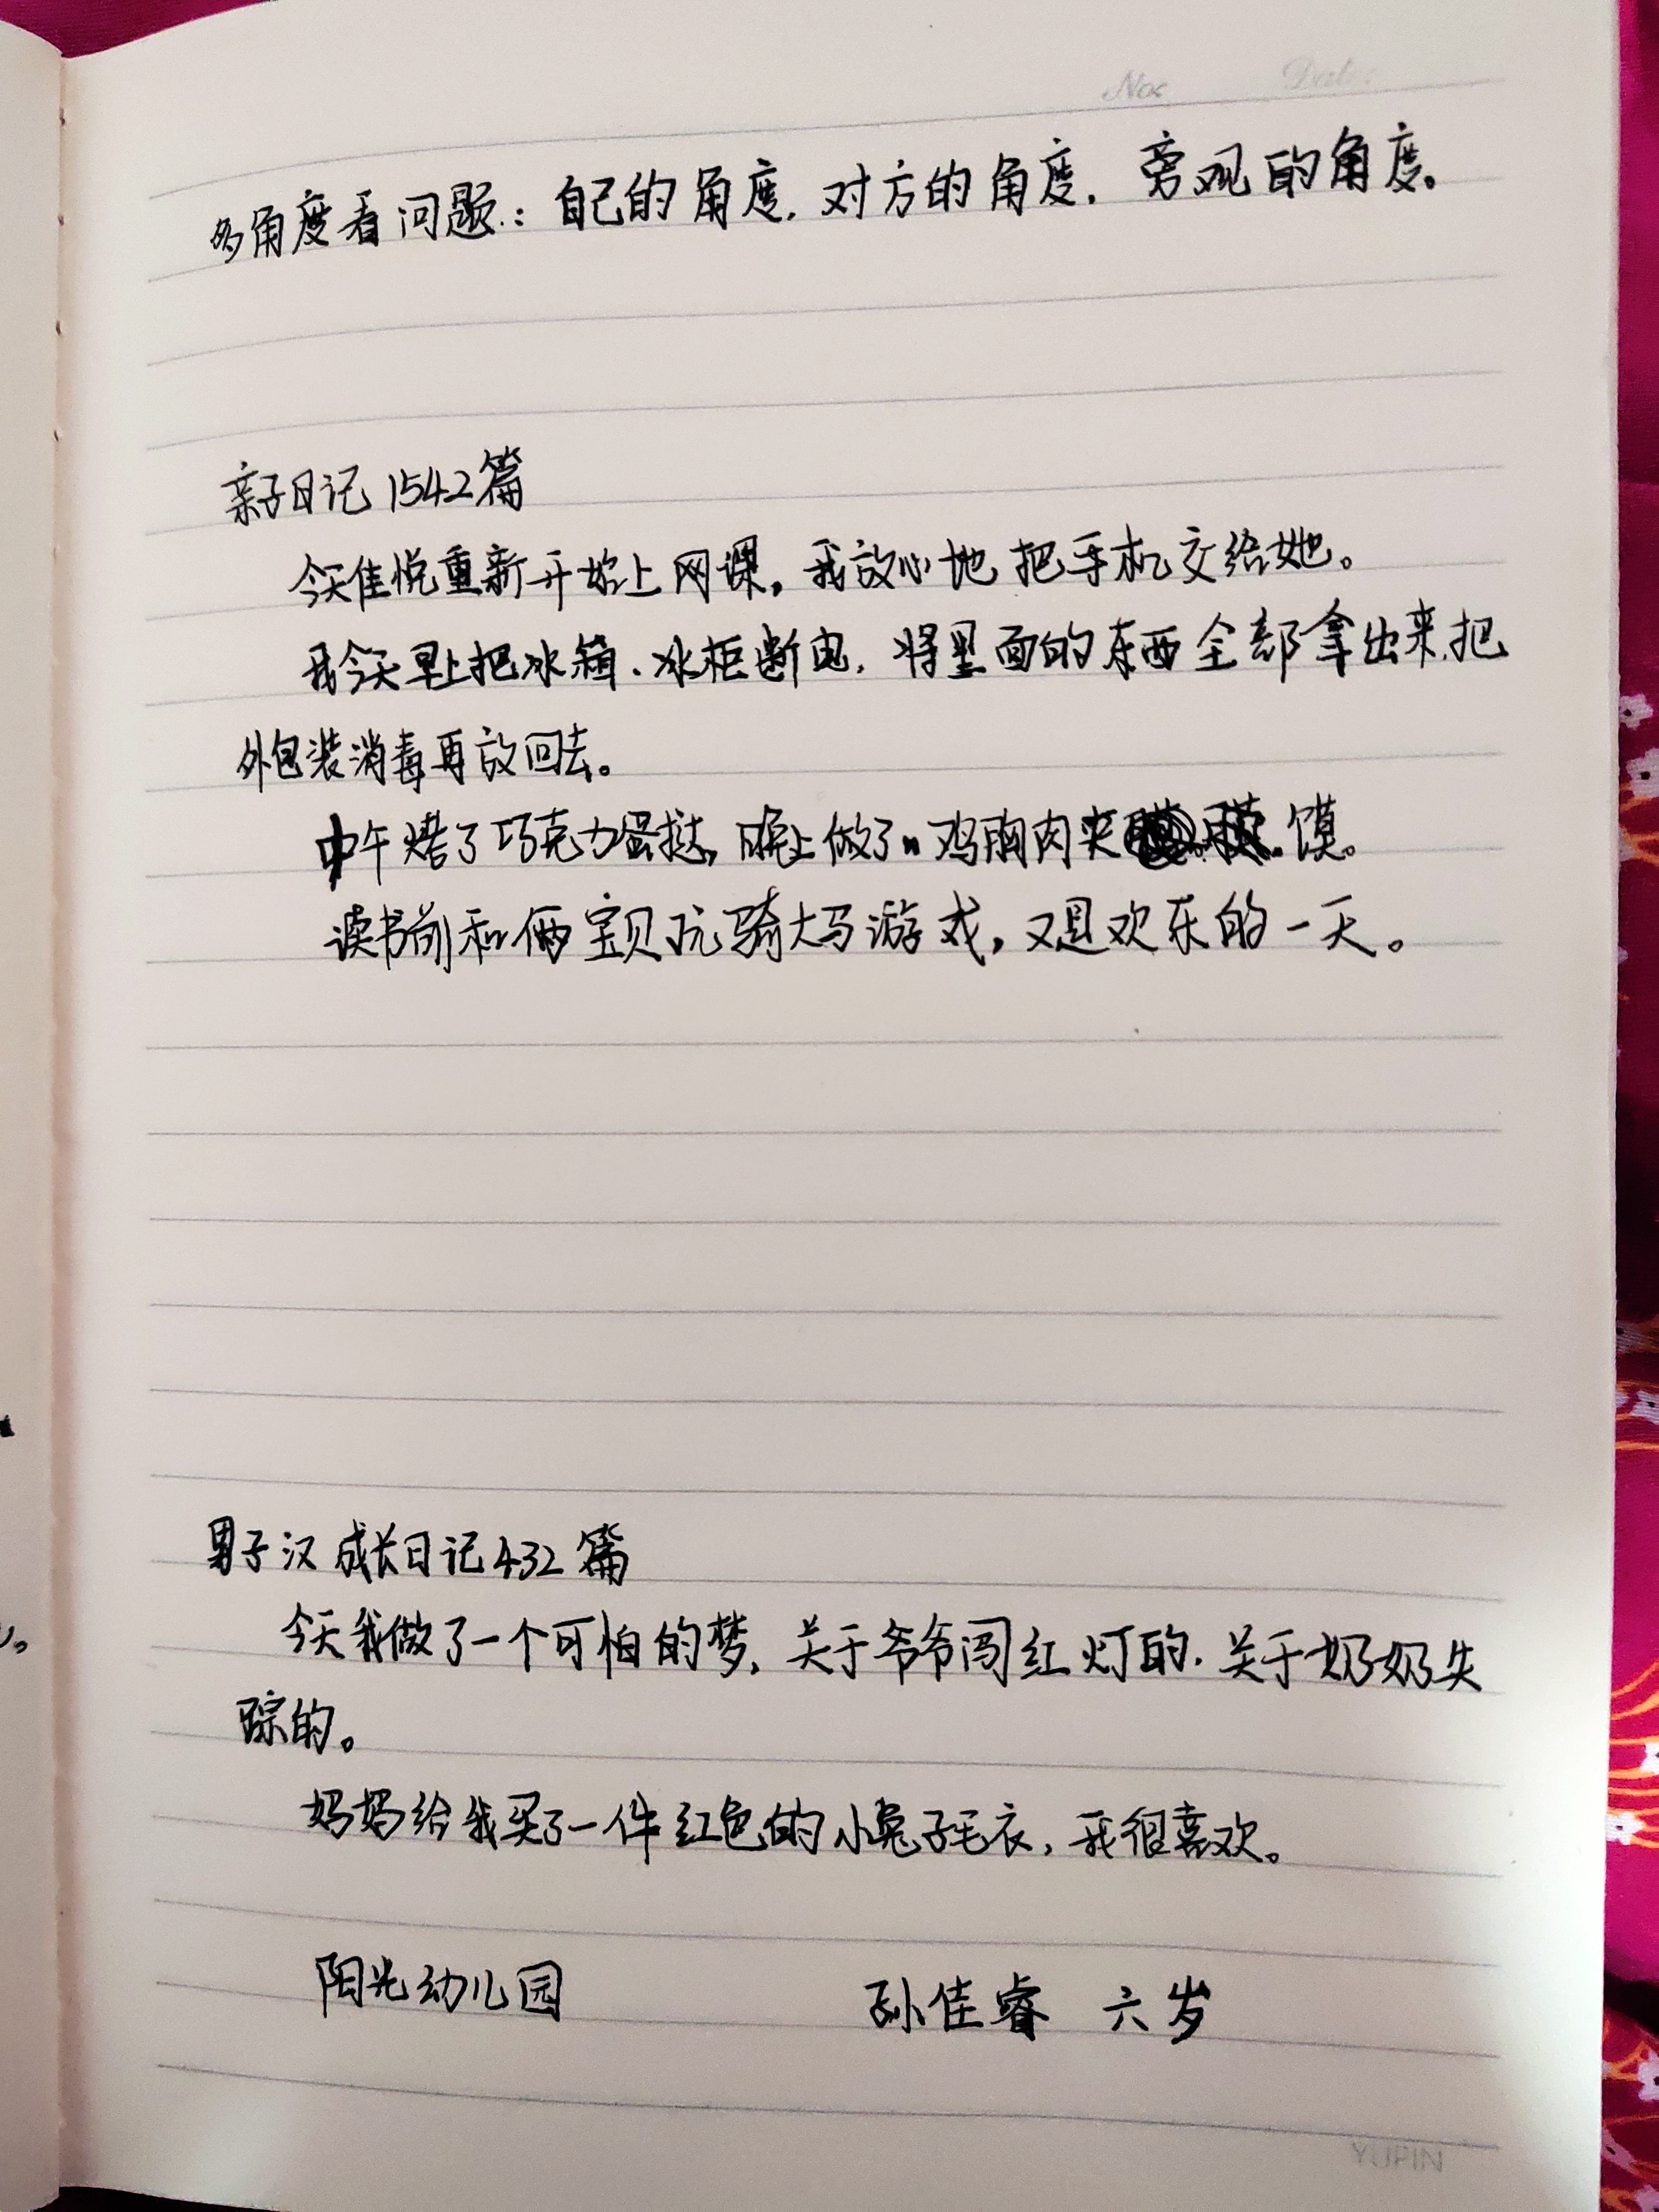 No: Date:
多角度看问题:自己的角度,对方的角度,旁观的角度。
亲子日记1542篇
今天佳悦重新开始上网课,我放心地把手机交给她。
我今天早上把冰箱、冰柜断电,将里面的东西全部拿出来,把
外包装消毒再放回去。
中午烤了巧克力蛋挞,晚上做了鸡胸肉夹馍。
读书前和俩宝贝玩骑大马游戏,又是欢乐的一天。
男子汉成长日记432篇
今天我做了一个可怕的梦,关于爷爷闯红灯的,关于奶奶失
踪的。
妈妈给我买了一件红色的小兔子毛衣,我很喜欢。
阳光幼儿园 孙佳睿 六岁
YUPIN